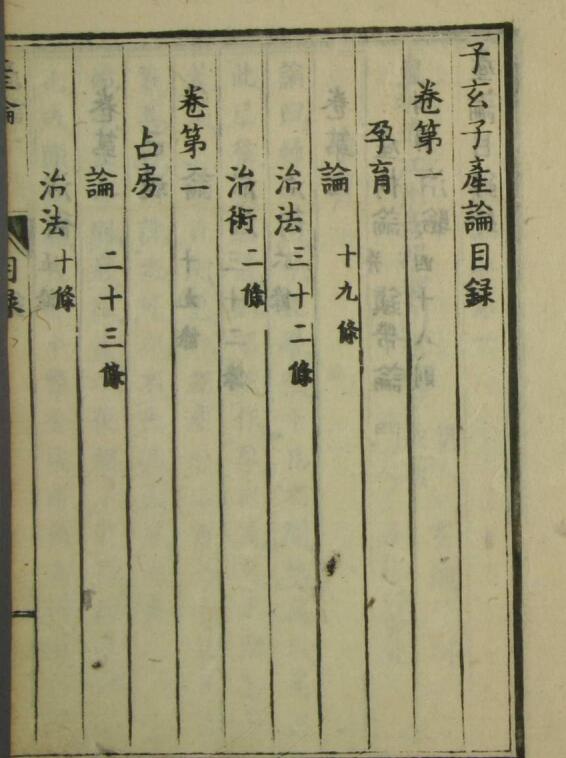 子玄子產論目録
卷第一
孕育
論 十九條
治法 三十二條
治術 二條
卷第二
占房
論 二十三條
治法 十條
目録